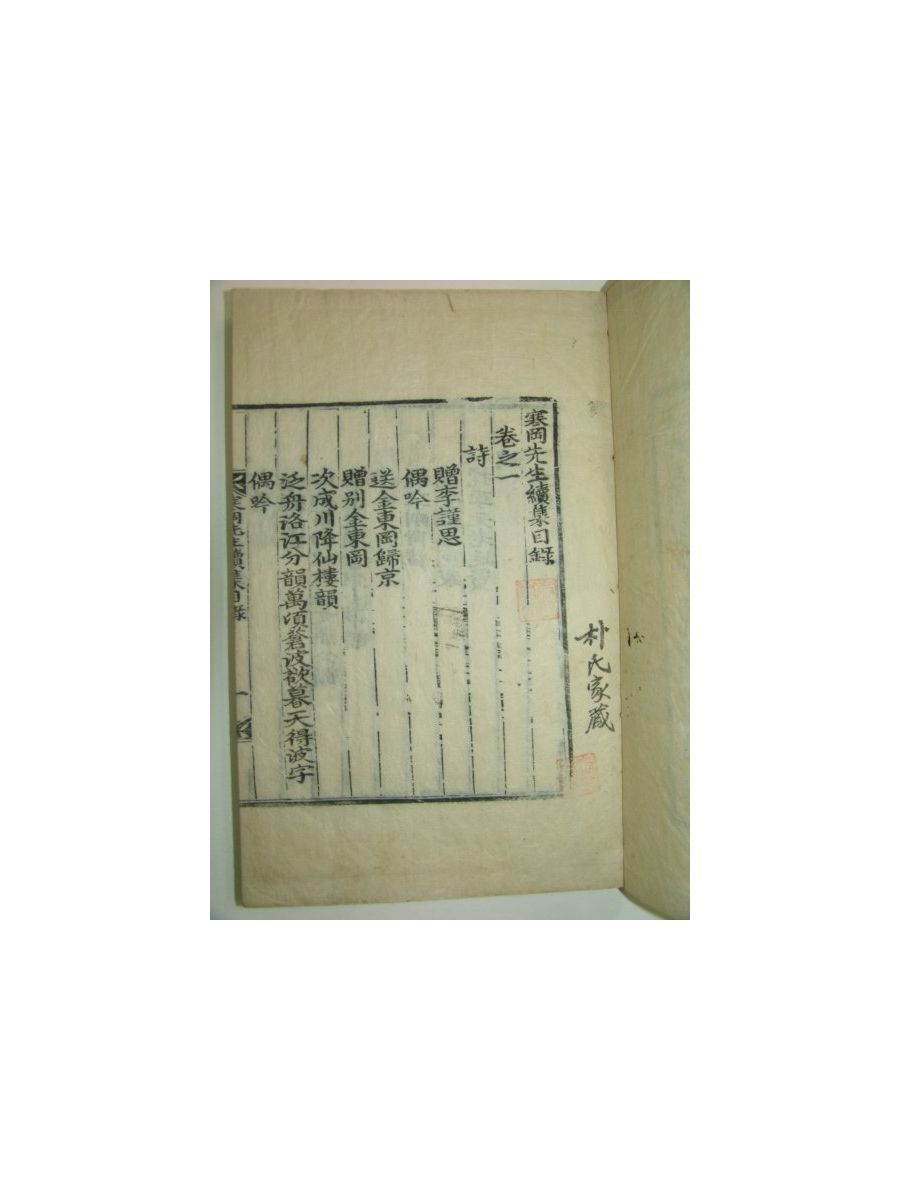 朴氏家藏
寒岡先生續集目錄
卷之一
詩
贈李謹思
偶吟
送金東岡歸京
贈別金東岡
次成川降仙樓韻
泛舟洛江分韻萬頃蒼波欲暮天得波字
偶吟
寒岡先生續集目錄 一